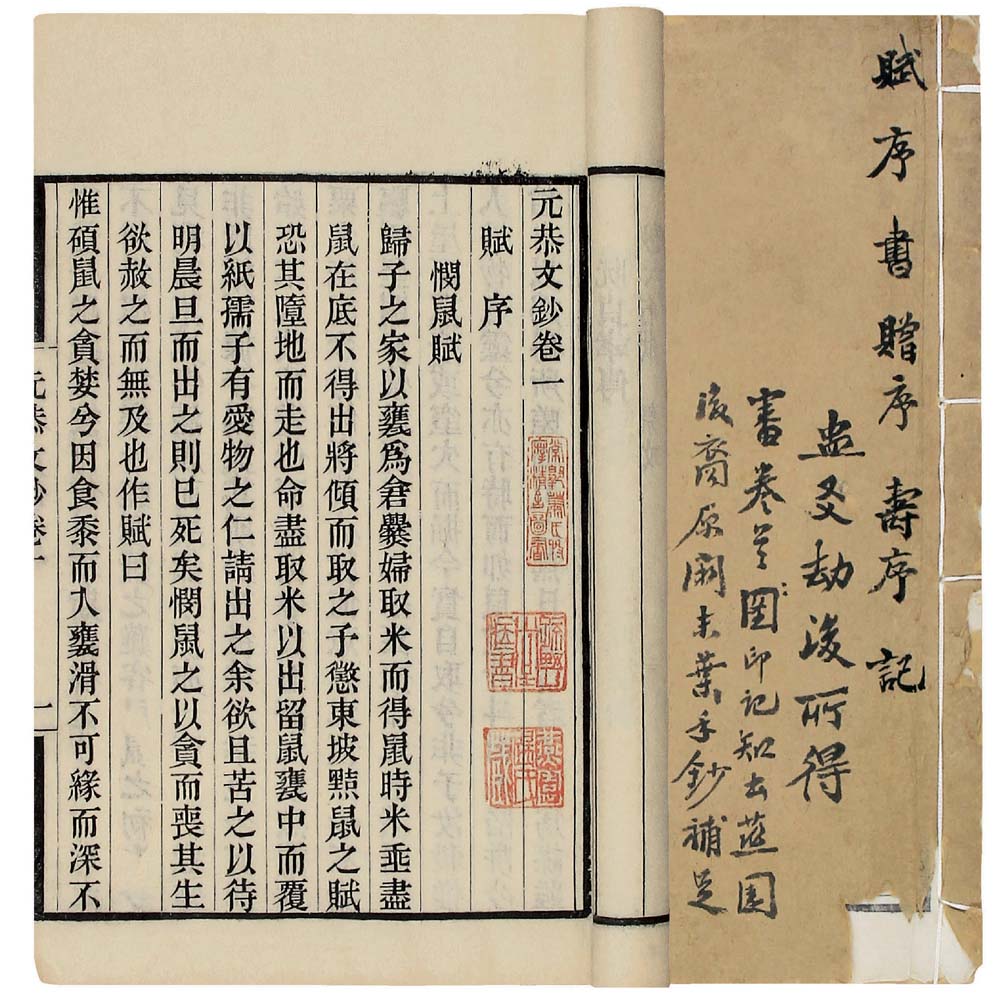 賦序書贈序壽序記
盅叟劫後所得
書卷首圖印記知出燕園
後裔原闕末葉手鈔補足
元恭文鈔卷一
賦 序
憫鼠賦
歸子之家以甕爲倉爨婦取米而得鼠時米垂盡
鼠在底不得出將傾而取之予懲東坡黠鼠之賦
恐其墮地而走也命盡取米以出留鼠甕中而覆
以紙孺子有愛物之仁請出之余欲且苦之以待
明晨旦而出之則已死矣憫鼠之以貪而喪其生
欲赦之而無及也作賦曰
惟碩鼠之貪婪兮因食黍而入甕滑不可緣而深不
元恭文鈔卷一
一